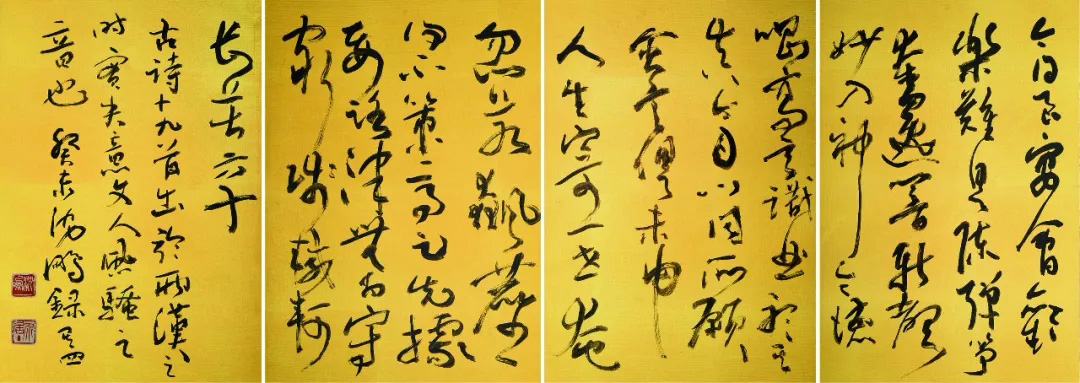 今日良宴會歡
樂難具陳彈箏
奮逸響新聲
妙入神令德
唱高言識曲聽其
真齊心同所願
含意俱未申
人生寄一世奄
忽若飆塵
何不策高足先據
要路津無為守
窮賤轗軻
長苦辛
古詩十九首出於兩漢之
時實失意文人風騷之
音也 癸未沈鵬録其四